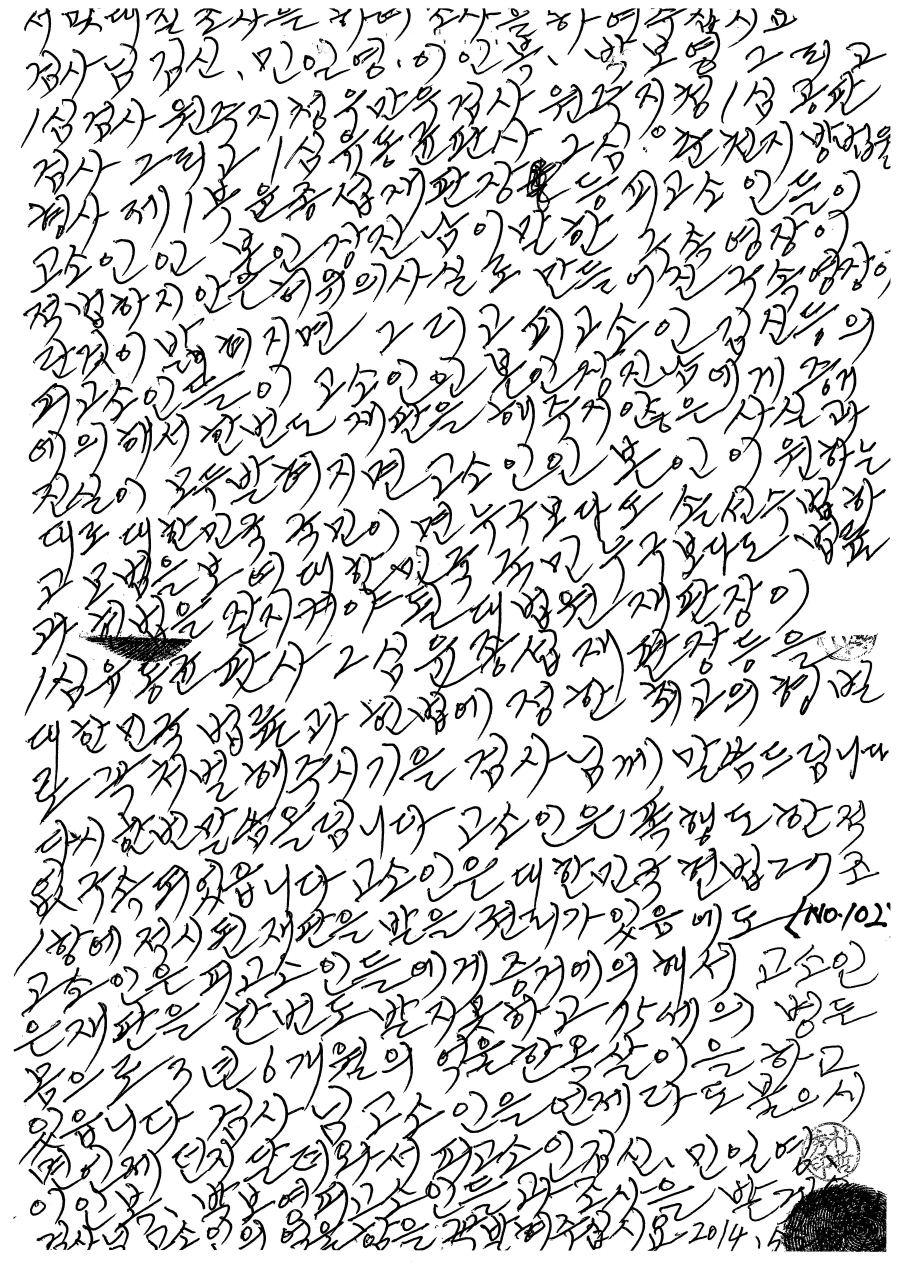 서 맞대질 조사를 하여 조사을 하여주십시요
검사님 김신, 민일영, 이인복, 박보영 그리고
1심 검사 원주지청 검사 원주지청 1심 공판
검사 그리고 1심 유동균 판사 2심 춘천지방법원
형사 제1부 재판장 등 피고소인들이
고소인인 본인 장진남이 말한 구속영장이
적법하지 안은 허위의 사실로 만들어진 구속영장이
라것이 발켜지면 그리고 피고소인 김신등의
피고소인들이 고소인인 본인 장진남에게 증거
에 의해서 한번도 재판을 해주지 안은 사실과
진실이 모두 발켜지면 고소인인 본인이 원하는
대로 대한민국 국민이 면 누구보다도 솔선수범하
고 모범을 보여 대한민국 국민 누구보다도 법률
과 헌법을 잘 지켜야 될 대법원 재판장이
1심 유동균 판사 2심 재판장 등을
대한민국 법률과 헌법에 정한 최고의 형벌
로 꼭 처벌해 주시기을 검사님께 말씀드립니다
다시 한번 말씀올립니다 고소인은 폭행도 한적
없 구속되었읍니다 고소인은 대한민국 헌법 27조
1항에 적시된 재판을 받을 권리가 있음에도 (NO.102
고소인은 피고소인들에게 증거에 의해서 고소인
은 재판을 한번도 받지 못하고 75세의 병든
몸으로 3년 6개월의 억울한 옥살이을 하고
있읍니다 검사님 고소인은 언제라도 불으시
면 언제 던지 달려와서 피고소인 김신, 민일영,
이인복, 박보영 피고소인들과 조사을 받
검사님 고소인의 억울함을 밝혀주십시요 2014.